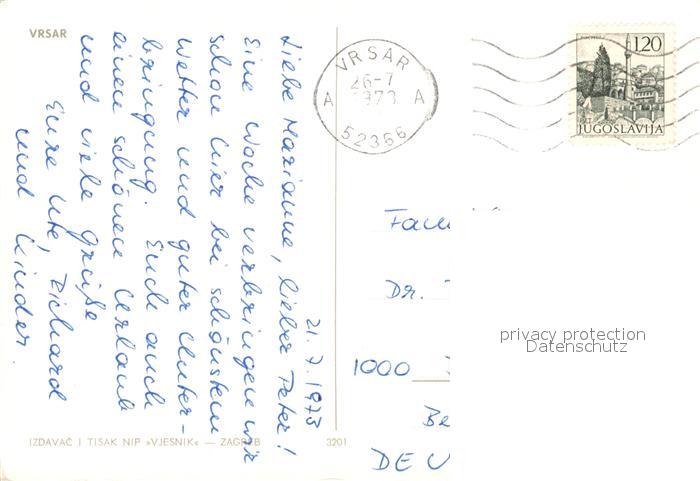 VRSAR
21.7.1973
Liebe Marianne, lieber Peter!
Eine Woche verbringen wir
schon hier bei schönstem
Wetter und guter Unter-
bringung. Euch auch
einen schönen Urlaub
und viele Grüße
Eure Ute, Richard
und Kinder.
IZDAVAČ I TISAK NIP »VJESNIK« — ZAGREB 3201
VRSAR
26-7
1973
A A
52366
1.20
JUGOSLAVIJA
Dr.
1000
privacy protection
Datenschutz